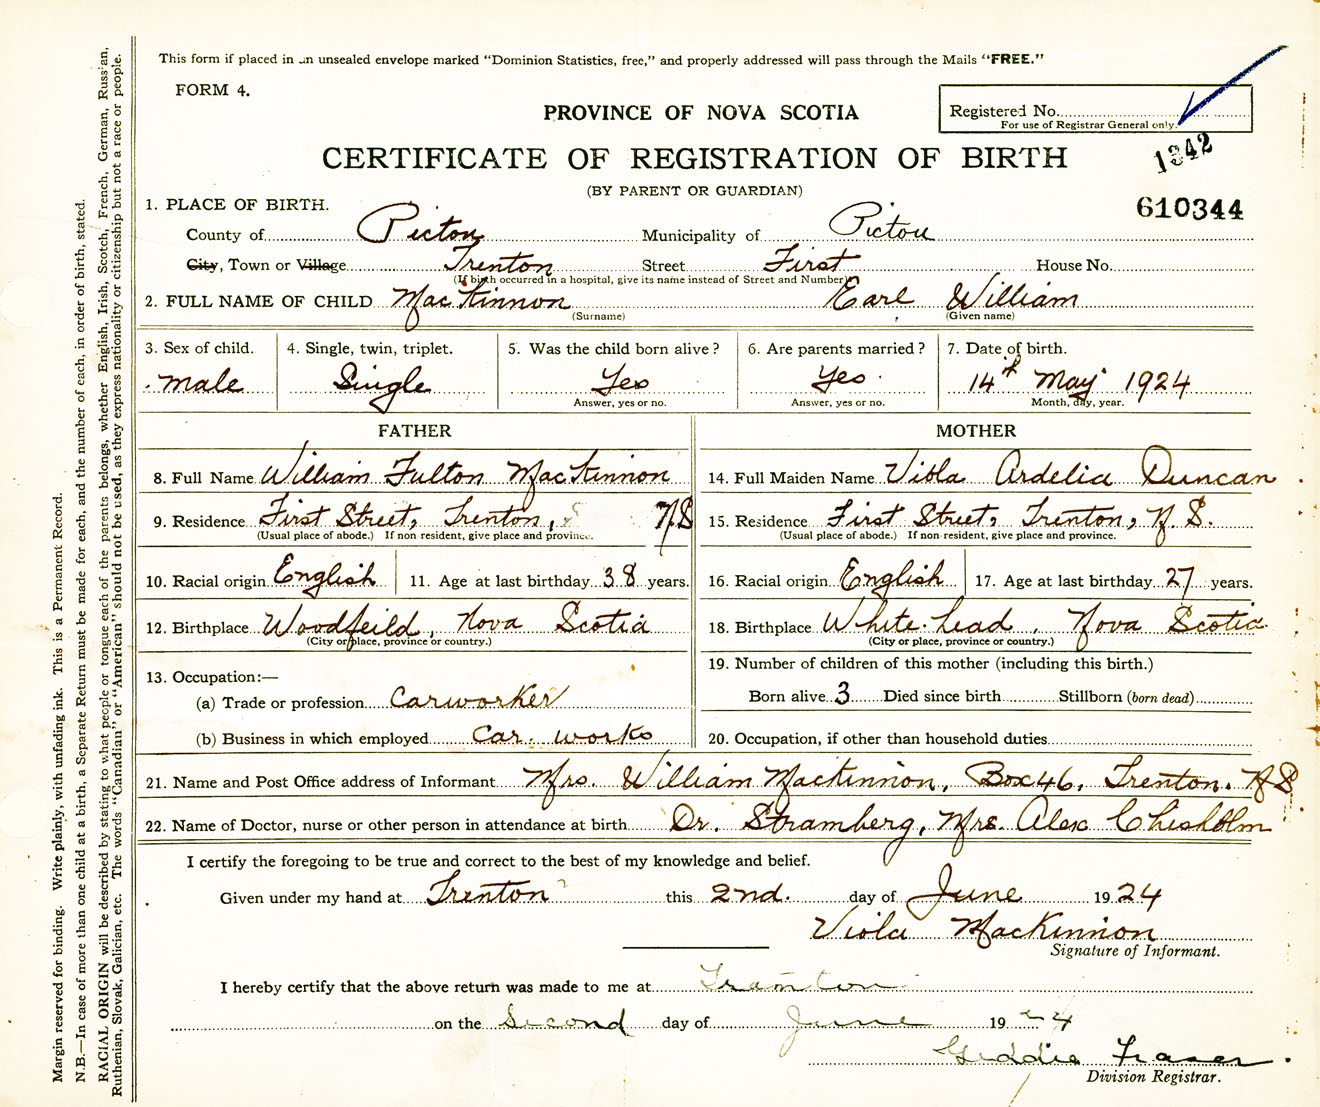 This form if placed in an unsealed envelope marked "Dominion Statistics, free," and properly addressed will pass through the Mails "FREE."
FORM 4.
PROVINCE OF NOVA SCOTIA
Registered No.
For use of Registrar General only.
1342
CERTIFICATE OF REGISTRATION OF BIRTH
(BY PARENT OR GUARDIAN)
610344
1. PLACE OF BIRTH.
County of Pictou Municipality of Pictou
City, Town or Village Trenton Street First House No.
(If birth occurred in a hospital, give its name instead of Street and Number)
2. FULL NAME OF CHILD MacKinnon Earl William
(Surname) (Given name)
3. Sex of child. 4. Single, twin, triplet. 5. Was the child born alive? 6. Are parents married? 7. Date of birth.
male Single Yes Yes 14th May 1924
Answer, yes or no. Answer, yes or no. Month, day, year.
FATHER MOTHER
8. Full Name William Fulton MacKinnon 14. Full Maiden Name Viola Ardelia Duncan
9. Residence First Street, Trenton, N.S 15. Residence First Street, Trenton, N.S.
(Usual place of abode.) If non resident, give place and province. (Usual place of abode.) If non-resident, give place and province.
10. Racial origin English 11. Age at last birthday 38 years. 16. Racial origin English 17. Age at last birthday 27 years.
12. Birthplace Woodfeild, Nova Scotia 18. Birthplace White-head, Nova Scotia
(City or place, province or country.) (City or place, province or country.)
13. Occupation:— 19. Number of children of this mother (including this birth.)
(a) Trade or profession Carworker Born alive 3 Died since birth Stillborn (born dead)
(b) Business in which employed Car. works 20. Occupation, if other than household duties
21. Name and Post Office address of Informant Mrs. William MacKinnon, Box 46, Trenton. N.S
22. Name of Doctor, nurse or other person in attendance at birth Dr. Stramberg, Mrs. Alex Chisholm
I certify the foregoing to be true and correct to the best of my knowledge and belief.
Given under my hand at Trenton this 2nd. day of June 1924
Viola MacKinnon
Signature of Informant.
I hereby certify that the above return was made to me at
on the Second day of June 1924
Geddie Fraser
Division Registrar.
Margin reserved for binding. Write plainly, with unfading ink. This is a Permanent Record.
N.B.—In case of more than one child at a birth, a Separate Return must be made for each, and the number of each, in order of birth, stated.
RACIAL ORIGIN will be described by stating to what people or tongue each of the parents belongs, whether English, Irish, Scotch, French, German, Russian,
Ruthenian, Slovak, Galician, etc. The words "Canadian" or "American" should not be used, as they express nationality or citizenship but not a race or people.